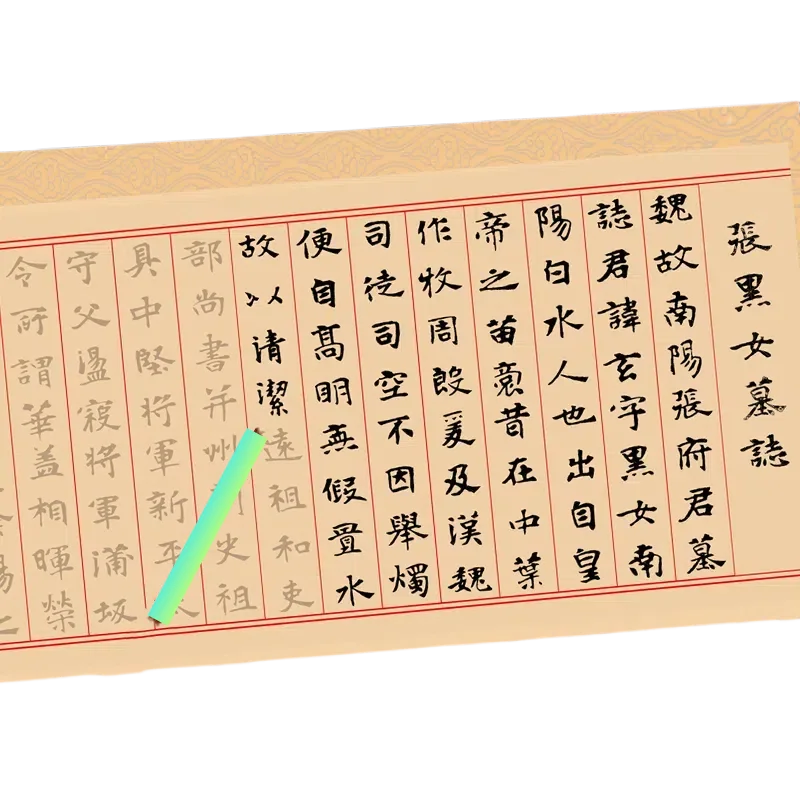 張黑女墓誌
魏故南陽張府君墓
誌君諱玄字黑女南
陽白水人也出自皇
帝之苗裔昔在中葉
作牧周殷爰及漢魏
司徒司空不因舉燭
便自髙明無假置水
故以清潔遠祖和吏
部尚書并州史祖
具中堅將軍新平
守父盪寇將軍蒲坂
令所謂華蓋相暉榮